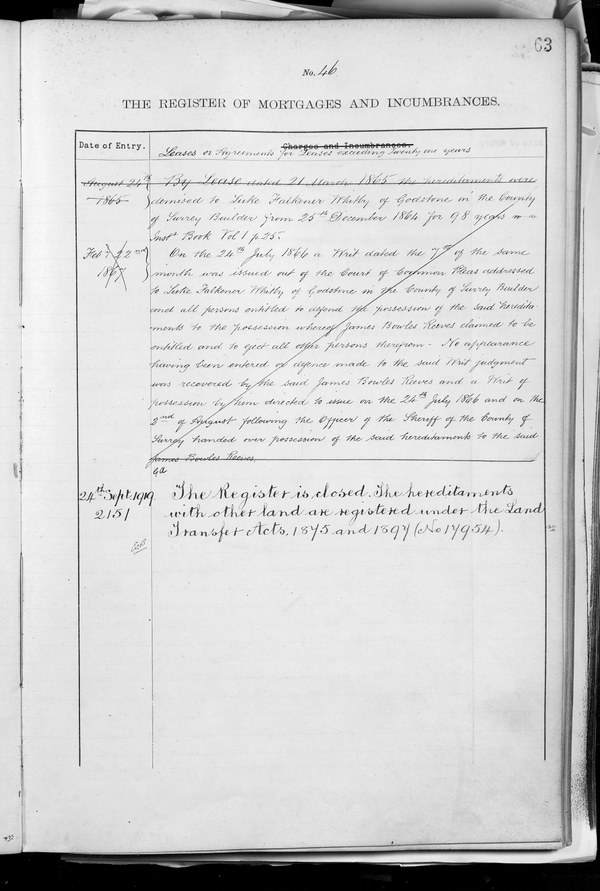 63
No. 46
THE REGISTER OF MORTGAGES AND INCUMBRANCES.
Date of Entry.
Charges and Incumbrances.
Leases or Agreements for Leases exceeding Twenty one years
August 24th 1865
By Lease dated 21 March 1865 the hereditaments were
demised to Luke Falkener Whitby of Godstone in the County
of Surrey Builder from 25th December 1864 for 98 years
Inst Book Vol 1 p 25.
Feby 22nd 1867
On the 24th July 1866 a Writ dated the 7th of the same
month was issued out of the Court of Common Pleas addressed
to Luke Falkener Whitby of Godstone in the County of Surrey Builder
and all persons entitled to defend the possession of the said heredita-
ments to the possession whereof James Bowles Reeves claimed to be
entitled and to eject all other persons therefrom - No appearance
having been entered or defence made to the said Writ judgment
was recovered by the said James Bowles Reeves and a Writ of
possession by him directed to issue on the 24th July 1866 and on the
2nd of August following the Officer of the Sheriff of the County of
Surrey handed over possession of the said hereditaments to the said
James Bowles Reeves.
24th Sept. 1919
2151
The Register is closed. The hereditaments
with other land are registered under the Land
Transfer Acts, 1875 and 1897 (No 17954).